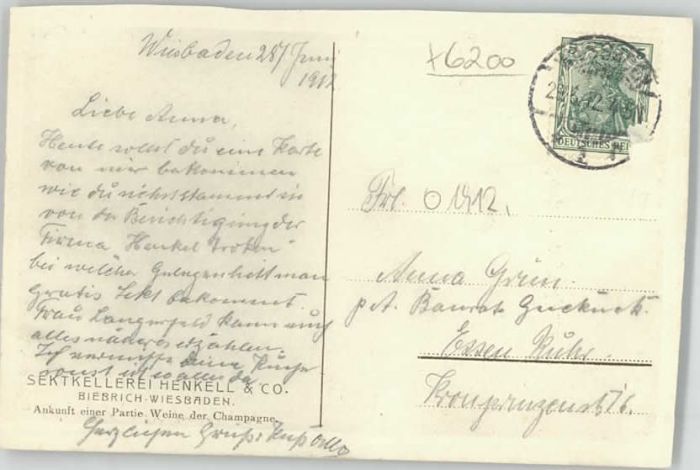 Wiesbaden 28/ Juni
1912
Liebe Anna,
Heute sollst du eine Karte
von mir bekommen
wie du siehst stammt sie
von der Besichtigung der
Firma Henkel Troken"
bei welcher Gelegenheit man
gratis Sekt bekommt.
Frau Langerfeld kann euch
alles näher erzählen.
Ich vermisse deine Küche
sonst ist alles da
SEKTKELLEREI HENKELL & CO.
BIEBRICH-WIESBADEN.
Ankunft einer Partie Weine der Champagne.
Herzlichen Gruß & Kuß Otto
x6200
5
DEUTSCHES REI
Frl. O 1912.
Anna Grün
p.A. Baurat Guckuck
Essen Ruhr.
Kronprinzenstr. 76.